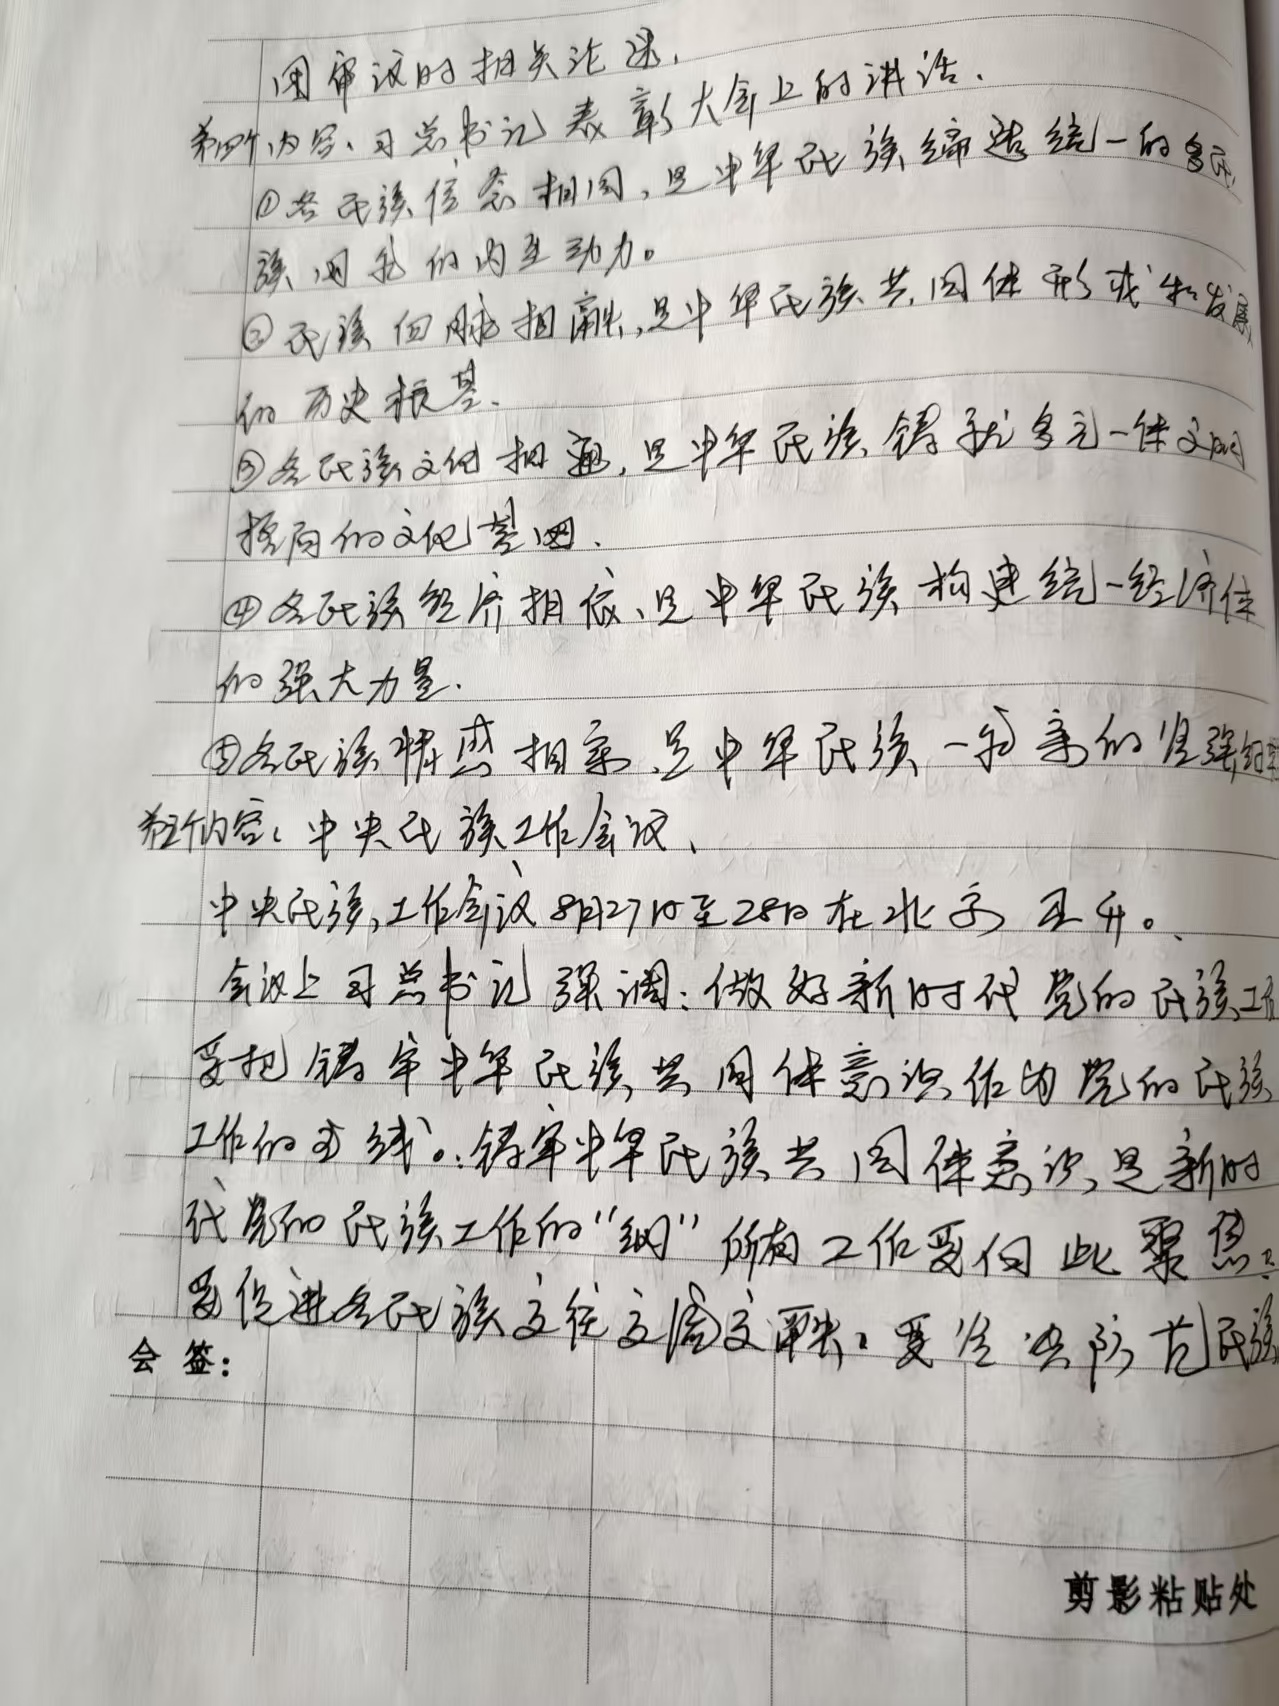 团审议时相关论述.
第四个内容、习总书记表彰大会上的讲话.
①各民族信念相同,是中华民族缔造统一的多民
族国家的内生动力。
②民族血脉相融,是中华民族共同体形成和发展
的历史根基.
③各民族文化相通,是中华民族铸就多元一体文明
格局的文化基因.
④各民族经济相依、是中华民族构建统一经济体
的强大力量.
⑤各民族情感相亲、是中华民族一家亲的坚强纽带
第五个内容:中央民族工作会议、
中央民族工作会议8月27日至28日在北京召开。
会议上习总书记强调:做好新时代党的民族工作
要把铸牢中华民族共同体意识作为党的民族
工作的主线。:铸牢中华民族共同体意识,是新时
代党的民族工作的“纲”所有工作要向此聚焦.
要促进各民族交往交流交融。要坚决防范民族
会签:
剪影粘贴处